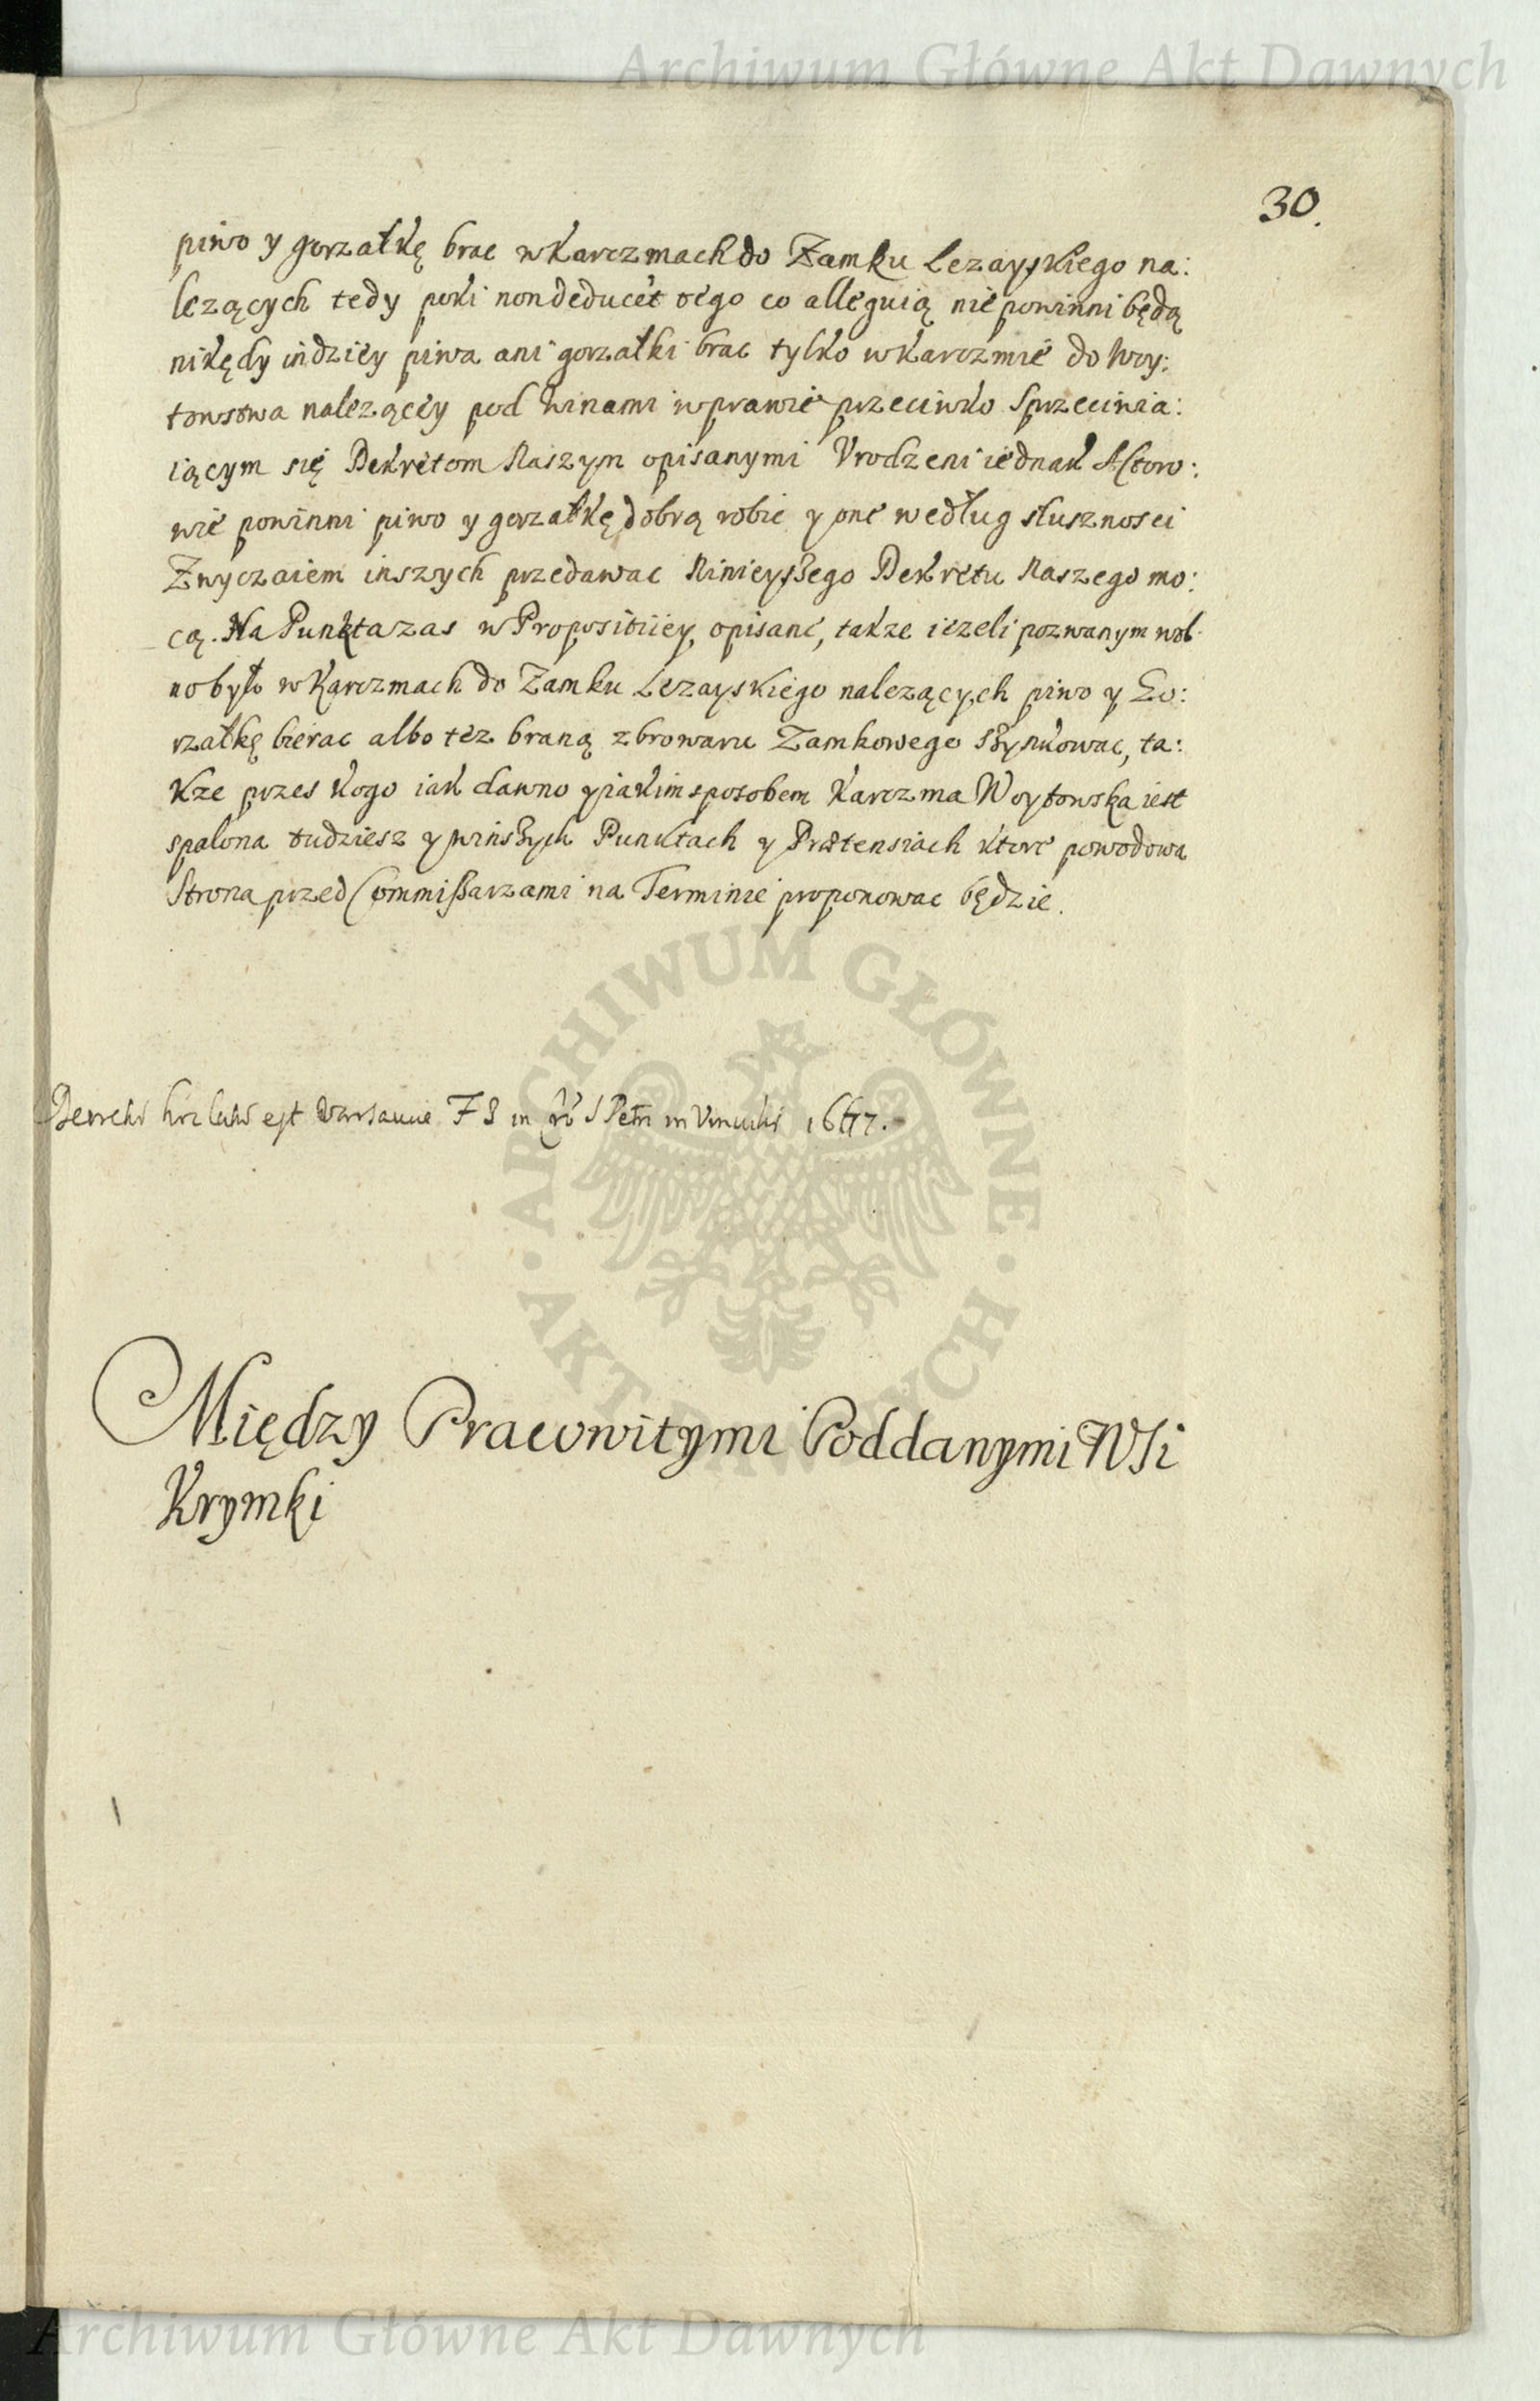 Archiwum Główne Akt Dawnych
30.
piwo y gorzałkę brac w Karczmach do Zamku Lezayskiego na:
lezących tedy poki non deducét tego co alleguią nie powinni będą
nikędy indziey piwa ani gorzałki brac tylko w karczmie do Woy:
towstwa nalezącéy pod winami w prawie przeciwko Sprzeciwia:
iącym się Dekretom Naszym opisanymi Vrodzeni iednak Actoro:
wie powinni piwo y gorzałkę dobrą robic y one według slusznosci
Zwyczaiem inszych przedawac Ninieyszego Dekretu Naszego mo:
cą. Na Punkta zas w Propositiiey, opisané, takze iezeli pozwanym wol
no było w Karczmach do Zamku Lezayskiego nalezących piwo y Go:
rzałkę bierac albo tez braną z browaru Zamkowego Szynkowac, ta:
kze przes kogo iak dawno y jakim sposobem Karczma Woytowska iest
spalona tudziesz y w inszych Punktach y Prætensiach ktore powodowa
Strona przed Commissarzami na Terminie proponowac będzie.
est Varsauiæ F S in S Petri in Vinculis
Między Pracowitymi Poddanymi WSi
Krymki
ARCHIWUM GŁÓWNE AKT DAWNYCH
Archiwum Główne Akt Dawnych